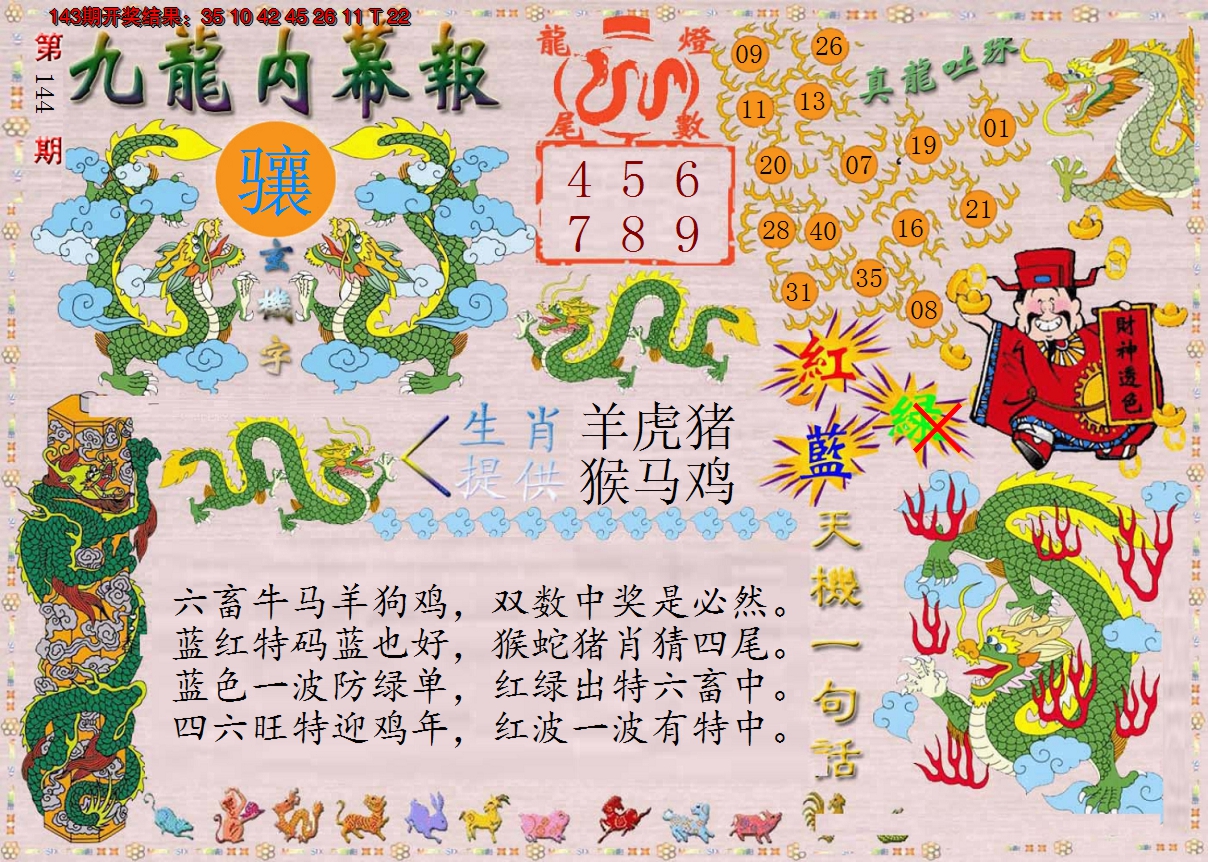 143期开奖结果：35 10 42 45 26 11 T 22
第144期
九龍内幕報
骧
玄機字
龍燈
尾數
4 5 6
7 8 9
真龍吐珠
09
26
11
13
19
01
20
07
21
28
40
16
35
31
08
紅
绿
藍
財神透色
生肖
提供
羊虎猪
猴马鸡
天機一句话
六畜牛马羊狗鸡，双数中奖是必然。
蓝红特码蓝也好，猴蛇猪肖猜四尾。
蓝色一波防绿单，红绿出特六畜中。
四六旺特迎鸡年，红波一波有特中。